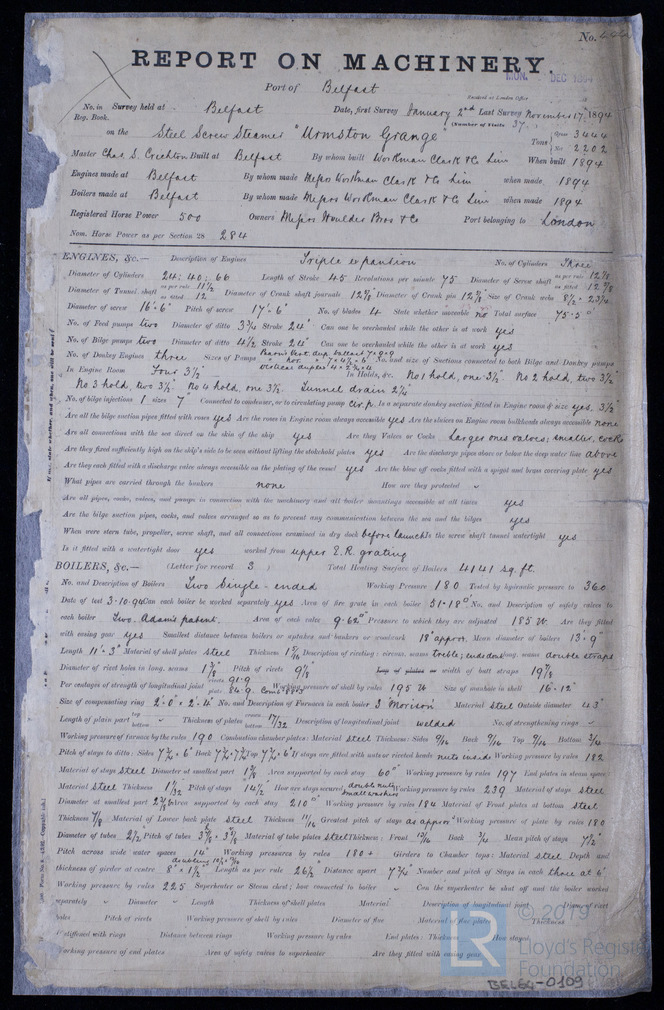 No.
REPORT ON MACHINERY.
MON. DEC 1894
Port of Belfast
Received at London Office
No. in Survey held at Belfast Date, first Survey January 2nd Last Survey November 17, 1894
Reg. Book. (Number of Visits 37
on the Steel Screw Steamer "Urmston Grange" Tons Gross 3444 Net 2202
Master Chas. S. Crechton Built at Belfast By whom built Workman Clark & Co Lim When built 1894
Engines made at Belfast By whom made Messrs Workman Clark & Co Lim when made 1894
Boilers made at Belfast By whom made Messrs Workman Clark & Co Lim when made 1894
Registered Horse Power 500 Owners Messrs Houlder Bros & Co Port belonging to London
Nom. Horse Power as per Section 28 284
ENGINES, &c.— Description of Engines Triple expansion No. of Cylinders Three
Diameter of Cylinders 24: 40: 66 Length of Stroke 45 Revolutions per minute 75 Diameter of Screw shaft as per rule 12 7/8 as fitted 12 7/8
Diameter of Tunnel shaft as per rule 11 1/2 as fitted 12 Diameter of Crank shaft journals 12 7/8 Diameter of Crank pin 12 7/8 Size of Crank webs 8 1/2 - 23 1/4
Diameter of screw 16'6" Pitch of screw 17'6" No. of blades 4 State whether moveable no Total surface 75.5
No. of Feed pumps two Diameter of ditto 3 3/4 Stroke 24" Can one be overhauled while the other is at work yes
No. of Bilge pumps two Diameter of ditto 4 1/2 Stroke 24" Can one be overhauled while the other is at work yes
No. of Donkey Engines three Sizes of Pumps No. and size of Suctions connected to both Bilge and Donkey pumps
In Engine Room Four 3 1/2" In Holds, &c. No 1 hold, one 3 1/2" No 2 hold, two 3 1/2"
No 3 hold, two 3 1/2" No 4 hold, one 3 1/2" Tunnel drain 2 1/4"
No. of bilge injections 1 sizes 7" Connected to condenser, or to circulating pump cir. p. Is a separate donkey suction fitted in Engine room & size yes, 3 1/2"
Are all the bilge suction pipes fitted with roses yes Are the roses in Engine room always accessible yes Are the sluices on Engine room bulkheads always accessible none
Are all connections with the sea direct on the skin of the ship yes Are they Valves or Cocks Larger ones valves; smaller, cocks
Are they fixed sufficiently high on the ship's side to be seen without lifting the stokehold plates yes Are the discharge pipes above or below the deep water line above
Are they each fitted with a discharge valve always accessible on the plating of the vessel yes Are the blow off cocks fitted with a spigot and brass covering plate yes
What pipes are carried through the bunkers none How are they protected
Are all pipes, cocks, valves, and pumps in connection with the machinery and all boiler mountings accessible at all times yes
Are the bilge suction pipes, cocks, and valves arranged so as to prevent any communication between the sea and the bilges yes
When were stern tube, propeller, screw shaft, and all connections examined in dry dock before launch Is the screw shaft tunnel watertight yes
Is it fitted with a watertight door yes worked from upper E.R. grating
BOILERS, &c.— (Letter for record 3 ) Total Heating Surface of Boilers 4141 sq. ft.
No. and Description of Boilers Two Single-ended Working Pressure 180 Tested by hydraulic pressure to 360
Date of test 3-10-94 Can each boiler be worked separately yes Area of fire grate in each boiler 51.18 No. and Description of safety valves to
each boiler Two. Adam's patent. Area of each valve 9.62 Pressure to which they are adjusted 185 Are they fitted
with easing gear yes Smallest distance between boilers or uptakes and bunkers or woodwork 18" approx. Mean diameter of boilers 13'.9"
Length 11'.3" Material of shell plates steel Thickness Description of riveting: circum. seams treble; inds. long. seams double straps
Diameter of rivet holes in long. seams 1 3/8 Pitch of rivets 9 1/8 Lap of plates or width of butt straps 19 7/8
Per centages of strength of longitudinal joint 91.9 84.9 Working pressure of shell by rules 195 Size of manhole in shell 16.12
Size of compensating ring 2'.0" x 2'.4" No. and Description of Furnaces in each boiler 3 Morison Material steel Outside diameter 43"
Length of plain part top bottom Thickness of plates crown bottom 17/32 Description of longitudinal joint welded No. of strengthening rings
Working pressure of furnace by the rules 190 Combustion chamber plates: Material steel Thickness: Sides 9/16 Back 9/16 Top 9/16 Bottom 3/4
Pitch of stays to ditto: Sides Back Top If stays are fitted with nuts or riveted heads nuts inside Working pressure by rules 182
Material of stays steel Diameter at smallest part Area supported by each stay 60" Working pressure by rules 197 End plates in steam space:
Material steel Thickness 1 1/32 Pitch of stays 14 1/2 How are stays secured double nuts small washers Working pressure by rules 239 Material of stays steel
Diameter at smallest part Area supported by each stay 210" Working pressure by rules 184 Material of Front plates at bottom steel
Thickness 7/8 Material of Lower back plate steel Thickness 11/16 Greatest pitch of stays as approd Working pressure of plate by rules 180
Diameter of tubes 2 1/2 Pitch of tubes 3 7/8 x 3 7/8 Material of tube plates steel Thickness: Front 13/16 Back 3/4 Mean pitch of stays 7 1/2
Pitch across wide water spaces 14" Working pressures by rules 180+ Girders to Chamber tops: Material steel Depth and
thickness of girder at centre 8" x 1 1/2" Length as per rule 26 1/2 Distance apart 7 3/4 Number and pitch of Stays in each three at 6"
Working pressure by rules 225 Superheater or Steam chest; how connected to boiler Can the superheater be shut off and the boiler worked
separately Diameter Length Thickness of shell plates Material Description of longitudinal joint Diam. of rivet
holes Pitch of rivets Working pressure of shell by rules Diameter of flue Material of flue plates Thickness
If stiffened with rings Distance between rings Working pressure by rules End plates: Thickness How stayed
Working pressure of end plates Area of safety valves to superheater Are they fitted with easing gear
© 2019
Lloyd's Register
Foundation
BEL64-0109